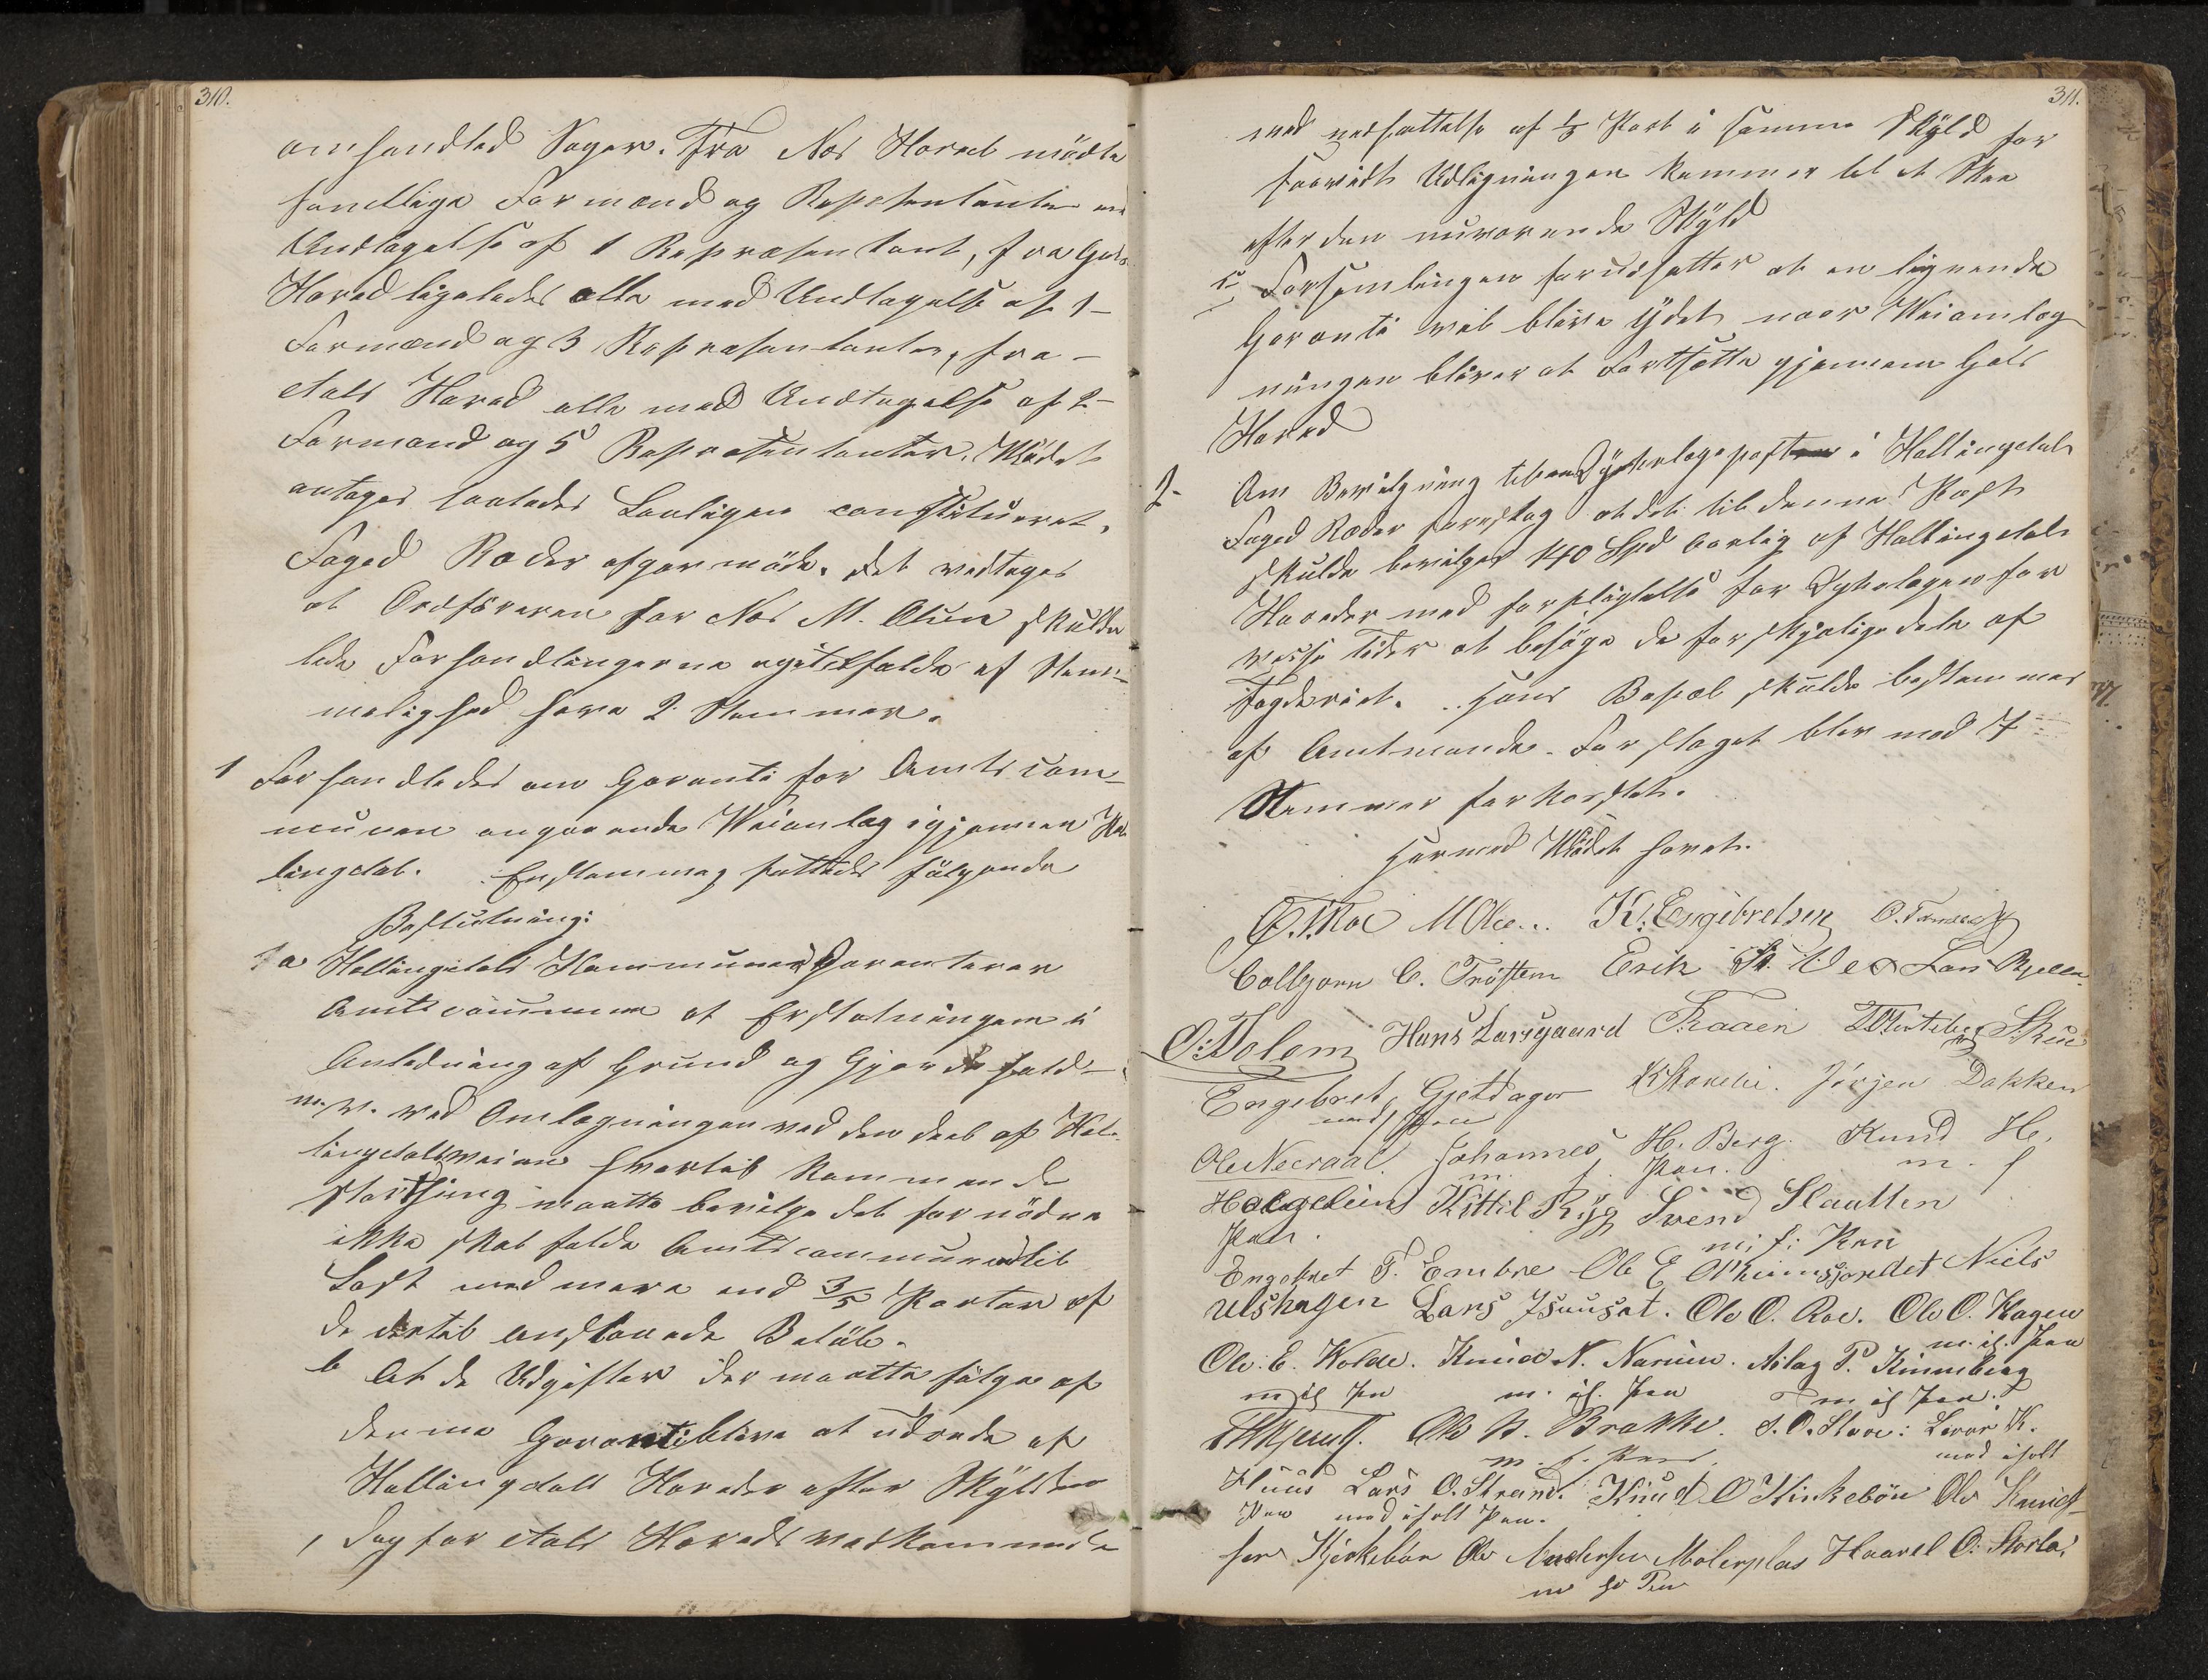 310.
omhandled Sager. Fra Nes Hered mödte
samtlige Formænd og Repesentanter med
Undtagelse af 1 Repræsentant, fra Gols
Hered ligeledes alle med Undtagelse af 1
Formænd og 3 Repræsentanter, fra
Aals Hered alle med Undtagelse af 2
Formænd og 5 Repræsentanter. Mödet
antoges saaledes Lovligen constitueret.
Foged Ræder afgav möde. Det vedtoges
at Ordföreren for Nes M. Olsen skulde
lede Forhandlingerne og i tilfælde af Stem-
melighed have 2 Stemmer.
1 Forhandledes om Garanti for Amtscom-
munen angaaende Veianlæg igjennem Hal
lingdal. Enstemmeg fattedes fölgende
Beslutning:
1 a Hallingdals Kommuner Garanterer
Amtscommunen at Erstatningen i
Anledning af Grund og Gjerdehold
m. v. ved Omlægningen ved den deel af Hal
lingdalsveien hvortil kommende
Storthing maatte bevilge det fornödne
ikke skal falde Amtscommunen til
Last med mere end 3/5 Parter af
de dertil anslaaede Belöb.
b At de Udgifter der maatte fölge af
denne Garanti blive at udrede af
Hallingdals Hereder efter Skylden
, dog for Aals Hereds vedkommende
311.
med nedsættelse af 1/3 Part i samme Skyld for
saavidt Udligningen kommer til at Skee
efter den nuværende Skyld
c, Forsamlingen forudsætter at en lignende
Garanti vil blive ydet naar Veiomlæg
ningen bliver at Fortsætte gjennem Gols
Hered
2- Om Bevilgning til en Dyrlægepost i Hallingdal
Foged Ræder foreslog at det til denne Post
skulde bevilges 140 Spd aarlig af Hallingdals
Hereder med forpligtelse for Dyrlægen for
visse tider at besöge de forskjelige dele af
Fogderiet. Hans Bopæl skulde bestemmes
af Amtmanden. Forslaget blev med 7
Stemmer forkastet.
Hermed Mödet hævet.
M Olse... K. Engebretsen
Colbjorn C. Tröstem Erik
O: Tolem Hans Larsgaard Traaen
Engebret Gjeldager Jörjen Dokken
med Pen
Ole Necraal Johannes H. Berg. Knud H.
m. f. Pen. m. f
Halgelien Kittil Ryg Svend Slaatten
Pen. m: f: Pen
Engebret T. Embre Ole E. Niels
Ulshagen Lars Ole O. Roe. Ole O. Hagen
m. if. Pen
Ole E. Wolde. Knud N. Narum. Aslag P.
m if Pen m. if. Pen m if Pen.
Ole N. Brakke. S. O. Stave: Levor K.
m. f. Pen. med ifölt
Huus Lars O. Strand. Knud O Kirkebön Ole Knud
Pen med ifölt Pen.
sen Kjirkebön Ole Andersen Molerplas Haavel O: Storla,
m f Pen